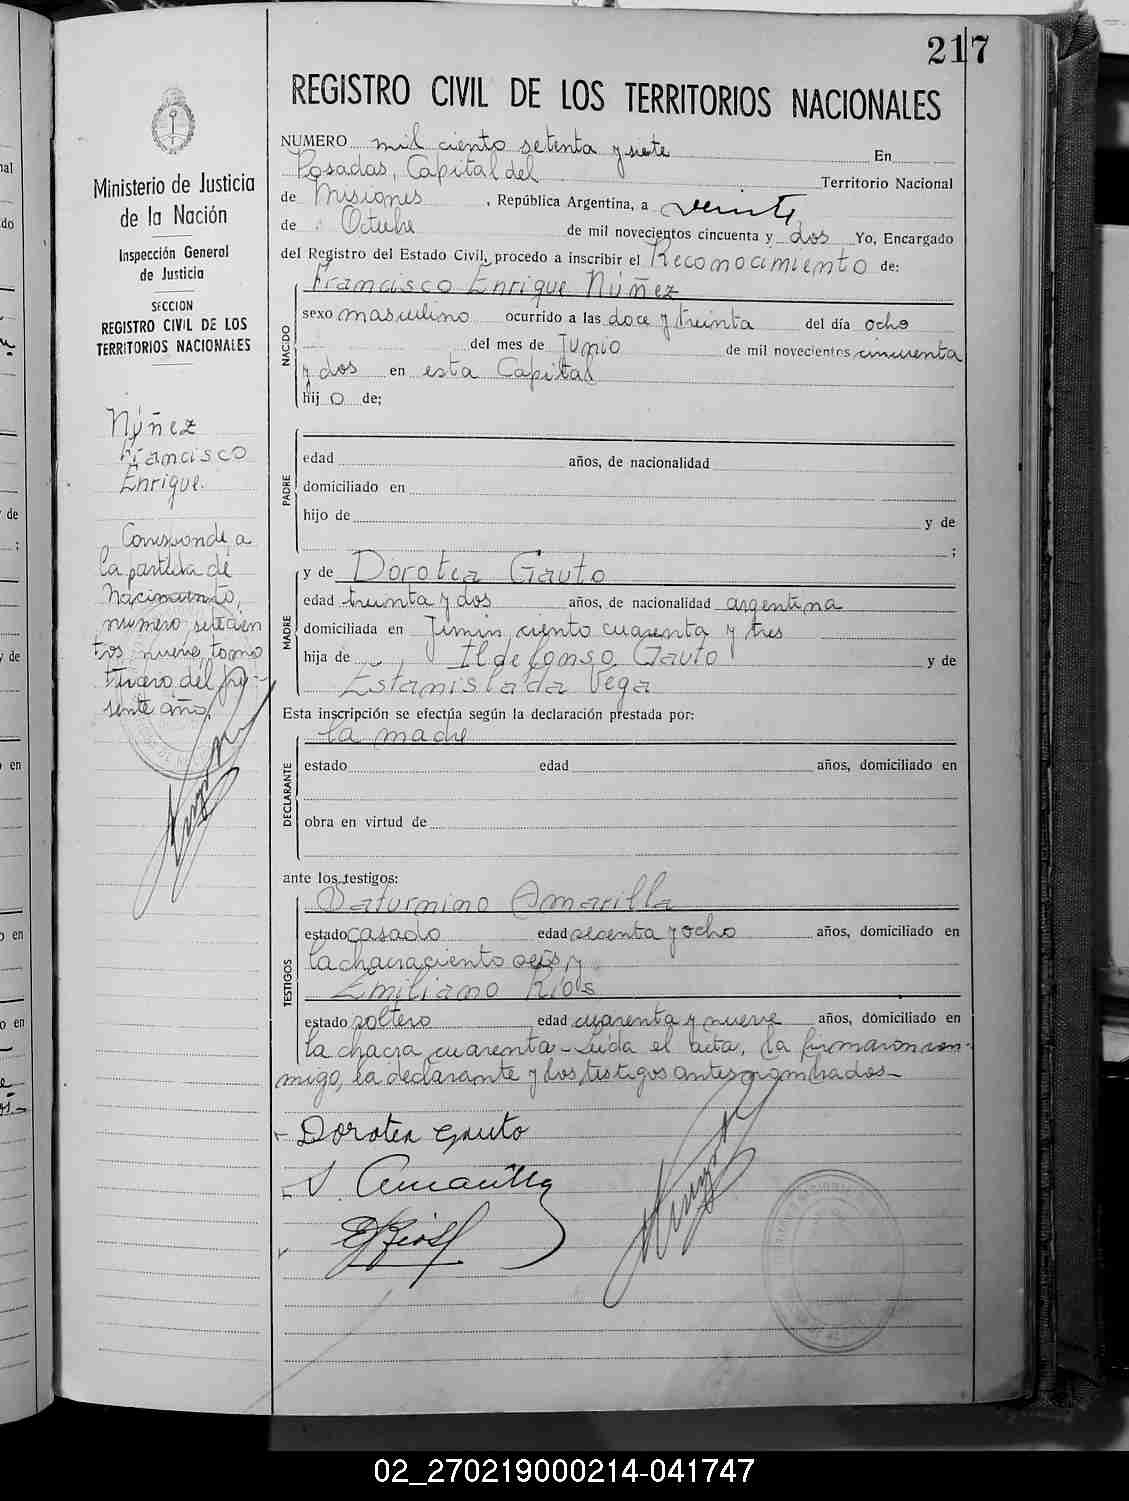 217
REGISTRO CIVIL DE LOS TERRITORIOS NACIONALES
Ministerio de Justicia
de la Nación
Inspección General
de Justicia
SECCION
REGISTRO CIVIL DE LOS
TERRITORIOS NACIONALES
Núñez
Francisco
Enrique.
Corresponde a
la partida de
Nacimiento,
número setecien
tos nueve, tomo
tercero, del pre-
sente año.
NUMERO mil ciento setenta y siete En
Posadas, Capital del Territorio Nacional
de Misiones, República Argentina, a veinte
de Octubre de mil novecientos cincuenta y dos Yo, Encargado
del Registro del Estado Civil, procedo a inscribir el Reconocimiento de:
Francisco Enrique Núñez
NACIDO
sexo masculino ocurrido a las doce y treinta del día ocho
del mes de Junio de mil novecientos cincuenta
y dos en esta Capital
hij o de;
PADRE
edad años, de nacionalidad
domiciliado en
hijo de y de
;
MADRE
y de Dorotea Gauto
edad treinta y dos años, de nacionalidad argentina
domiciliada en Junin, ciento cuarenta y tres
hija de Ildefonso Gauto y de
Estanislada Vega
Esta inscripción se efectúa según la declaración prestada por:
la madre
DECLARANTE
estado edad años, domiciliado en
obra en virtud de
ante los testigos:
Saturnino Amarilla
TESTIGOS
estado casado edad sesenta y ocho años, domiciliado en
la chacra ciento seis, y
Emiliano Ríos
estado soltero edad cuarenta y nueve años, domiciliado en
la chacra cuarenta - Leída el acta, la firmaron con-
migo, la declarante y los testigos antes nombrados -
Dorotea Gauto
S. Amarilla
E Rios
02_270219000214-041747